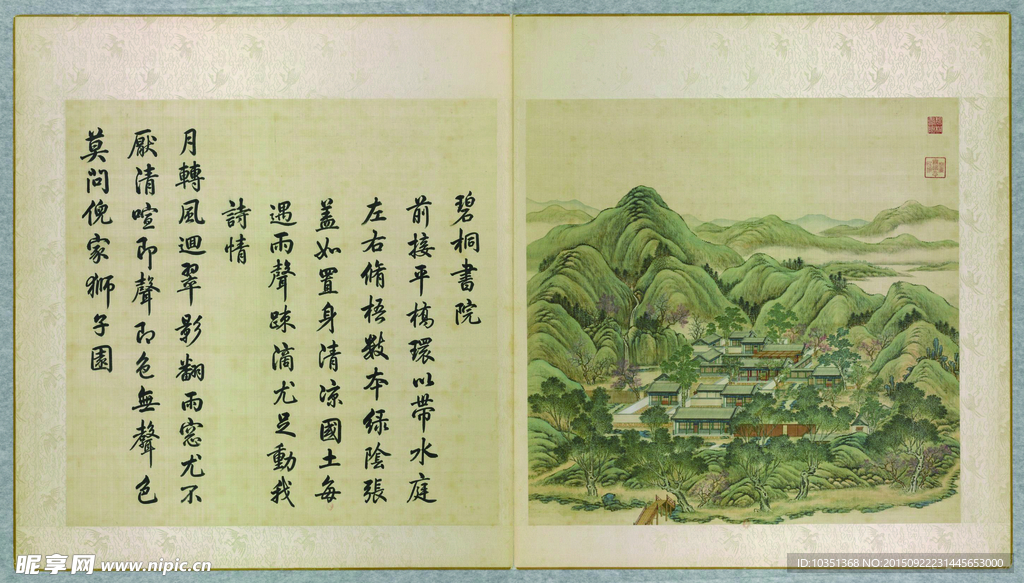 碧桐書院
前接平橋環以帶水庭
左右脩梧數本綠陰張
蓋如置身清涼國土每
遇雨聲踈滴尤足動我
詩情
月轉風迴翠影翻雨窓尤不
厭清喧即聲即色無聲色
莫問倪家獅子園
昵享网 www.nipic.cn
ID:10351368 NO:20150922231445653000